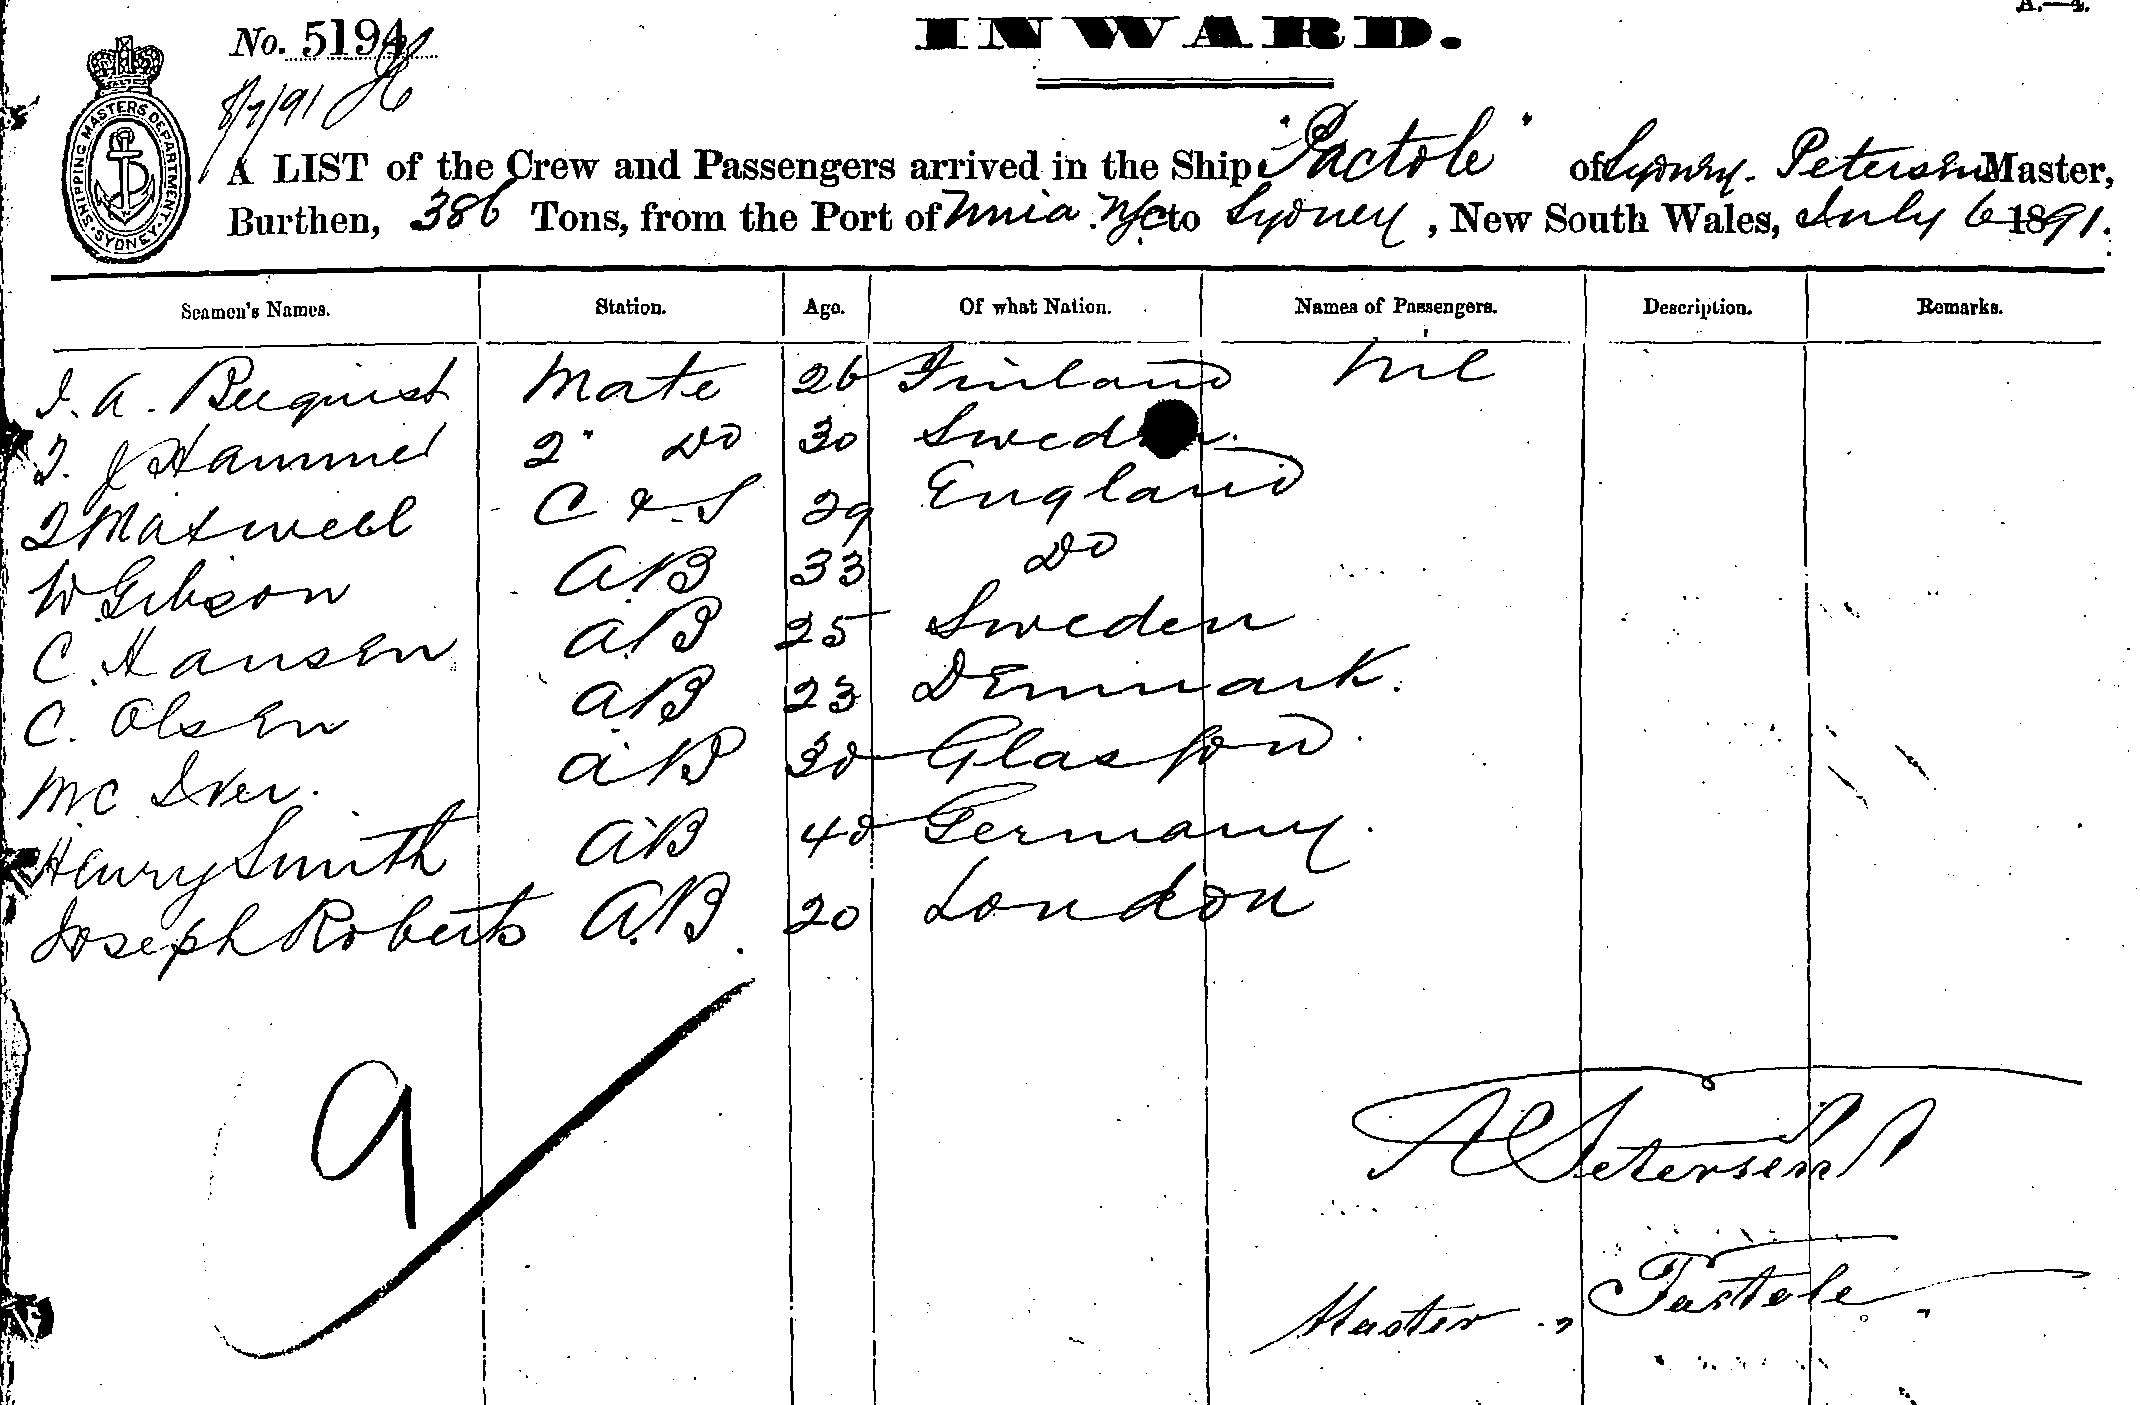 A.—4.
No. 5194
INWARD.
8/7/91
SHIPPING MASTERS DEPARTMENT
SYDNEY
A LIST of the Crew and Passengers arrived in the Ship "Pactole" of Sydney. Petersen Master,
Burthen, 386 Tons, from the Port of N/C to Sydney, New South Wales, July 6 1891.
Seamen's Names. Station. Age. Of what Nation. Names of Passengers. Description. Remarks.
J. A. Mate 26 Finland Nil
J. J Hammel 2" Do 30 Sweden.
J Maxwell C & S 29 England
W Gibson A.B 33 Do
C. Hansen A.B 25 Sweden
C. Olsen AB 23 Denmark.
Mc Iver. AB 30 Glasgow.
Henry Smith AB 40 Germany.
Joseph Roberts A.B. 20 London
9
Petersen
Master "Pactole"